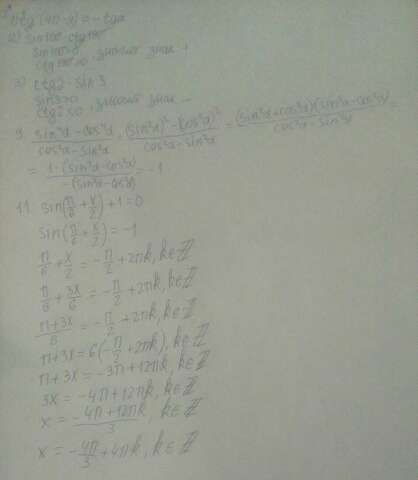 tg(4π-α) = -tgα
sin100° · ctg190°
sin100°>0
ctg190°>0, значит, знак +
ctg2 · sin3
sin3>0
ctg2<0, значит, знак -
9. (sin⁴α - cos⁴α)/(cos²α - sin²α) = ((sin²α)² - (cos²α)²)/(cos²α - sin²α) = ((sin²α + cos²α)(sin²α - cos²α))/(cos²α - sin²α) =
= (1 · (sin²α - cos²α))/(-(sin²α - cos²α)) = -1
11. sin(π/6 + x/2) + 1 = 0
sin(π/6 + x/2) = -1
π/6 + x/2 = -π/2 + 2πk, k∈ℤ
π/6 + 3x/6 = -π/2 + 2πk, k∈ℤ
(π+3x)/6 = -π/2 + 2πk, k∈ℤ
π+3x = 6(-π/2 + 2πk), k∈ℤ
π+3x = -3π + 12πk, k∈ℤ
3x = -4π + 12πk, k∈ℤ
x = (-4π + 12πk)/3, k∈ℤ
x = -4π/3 + 4πk, k∈ℤ